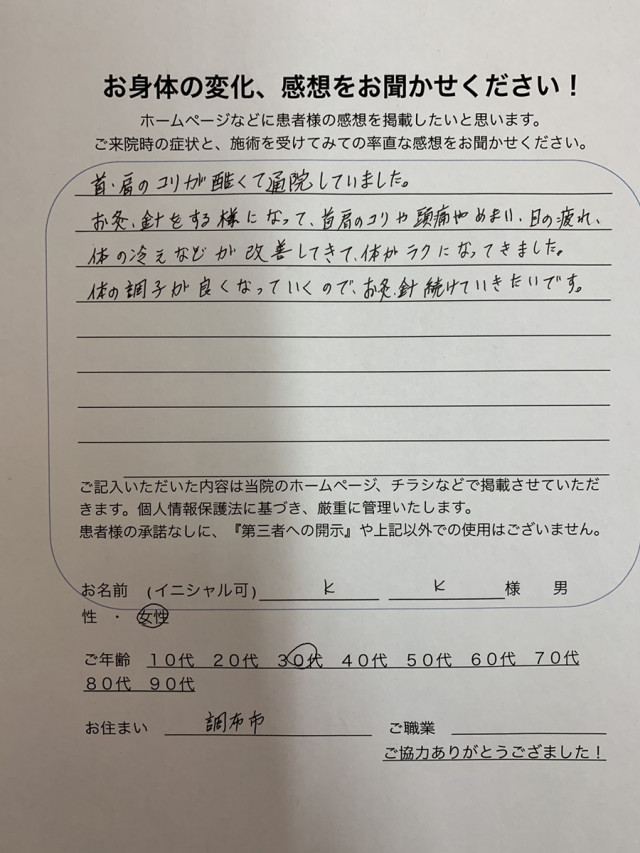 お身体の変化、感想をお聞かせください！
ホームページなどに患者様の感想を掲載したいと思います。
ご来院時の症状と、施術を受けてみての率直な感想をお聞かせください。
首・肩のコリが酷くて通院していました。
お灸、針をする様になって、首肩のコリや頭痛やめまい、目の疲れ、
体の冷えなどが改善してきて、体がラクになってきました。
体の調子が良くなっていくので、お灸、針続けていきたいです。
ご記入いただいた内容は当院のホームページ、チラシなどで掲載させていただ
きます。個人情報保護法に基づき、厳重に管理いたします。
患者様の承諾なしに、『第三者への開示』や上記以外での使用はございません。
お名前　(イニシャル可) K K 様　男
性　・　女性
ご年齢　１０代　２０代　３０代　４０代　５０代　６０代　７０代
８０代　９０代
お住まい　調布市　ご職業
ご協力ありがとうござました！